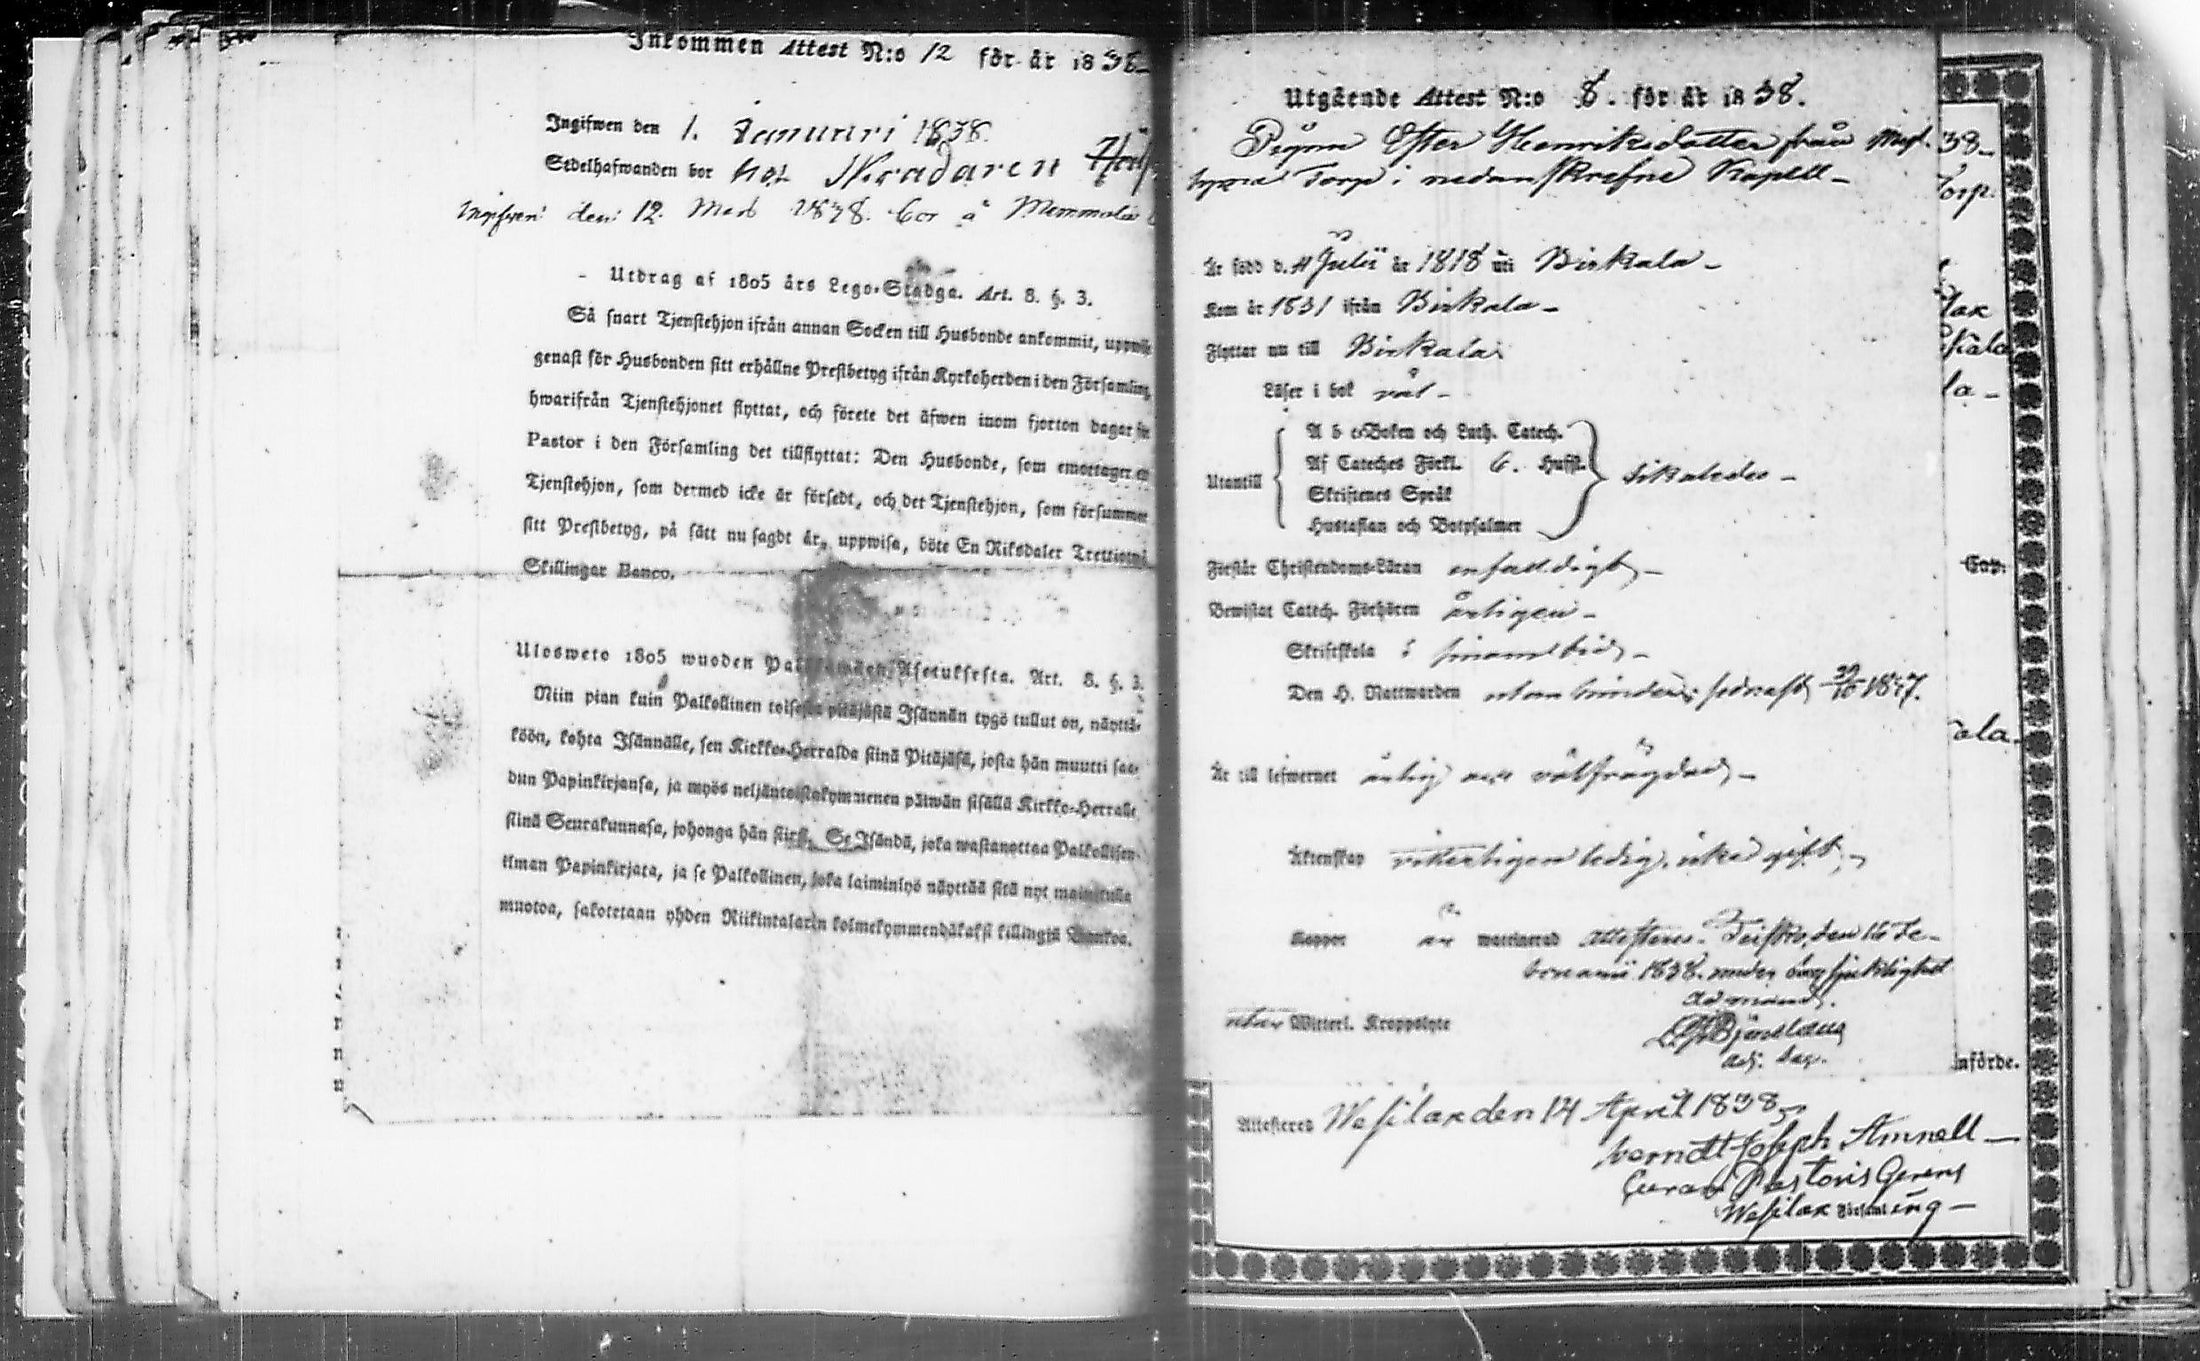 Inkommen Attest N:o 12 för år 1838
Ingifwen den 1. Januari 1838.
Sedelhafwanden bor hos Skradaren
Ingifven den 12. Mars 1838. bor å
Utdrag af 1805 års Lego-Stadga. Art. 8. §. 3.
Så snart Tjenstehjon ifrån annan Socken till Husbonde ankommit, uppwise
genast för Husbonden sitt erhållne Prestbetyg ifrån Kyrkoherden i den Församling,
hwarifrån Tjenstehjonet flyttat, och förete det äfwen inom fjorton dagar för
Pastor i den Församling det tillflyttat: Den Husbonde, som emottager en
Tjenstehjon, som dermed icke är försedt, och det Tjenstehjon, som försummer
sitt Prestbetyg, på sätt nu sagdt är, uppwisa, böte En Riksdaler Trettiotwå
Skillingar Banco.
Ulosweto 1805 wuoden Palkkawäen Asetuksesta. Art. 8. §. 3.
Niin pian kuin Palkollinen toisesta pitäjästä Isännän tygö tullut on, näyttä-
köön, kohta Isännälle, sen Kirkko-Herralda siinä Pitäjäsä, josta hän muutti saa-
dun Papinkirjansa, ja myös neljäntoistakymmenen päiwän sisällä Kirkko-Herralle
siinä Seurakunnasa, johonga hän siirsi. Se Isändä, joka wastanottaa Palkollisen
ilman Papinkirjata, ja se Palkollinen, joka laiminlyö näyttää sitä nyt mainitulla
muotoa, sakotetaan yhden Riikintalarin kolmekymmendäkaksi killingiä Bankoa.
Utgående Attest N:o 8. för år 1838.
Pigan Ester Henriksdotter från
Torp i nedanskrefne Kapell
Är född d. 4 Julii år 1818 uti Birkala
Kom år 1831 ifrån Birkala
Flyttar nu till Birkala
Läser i bok wäl
A b c Boken och Luth. Catech.
Af Cateches Förkl. 6. Hufst.
Utantill likaledes
Skriftenes Språk
Hustaflan och Botpsalmer
Förstår Christendoms-Läran enfaldigt
Bewistat Catech. Förhören årligen
Skriftskola i sinom tid
Den H. Nattwarden utan hinder; sednast 1837.
Är till lefwernet ärlig och wälfrägdad
Äktenskap witterligen ledig, icke gift
Koppor är waccinerad Attesteras. Teisko, den 16 Fe-
bruarii 1838. under
ad mand.
utan Witterl. Kroppslyte
adj. Sac.
Attesteres Wesilax den 14 April 1838
Berndt Joseph Amnell
Curam Pastoris Gerens
i Wesilax Församling
38
Torp.
lax
kala
la
Cap.
ala
nförde.